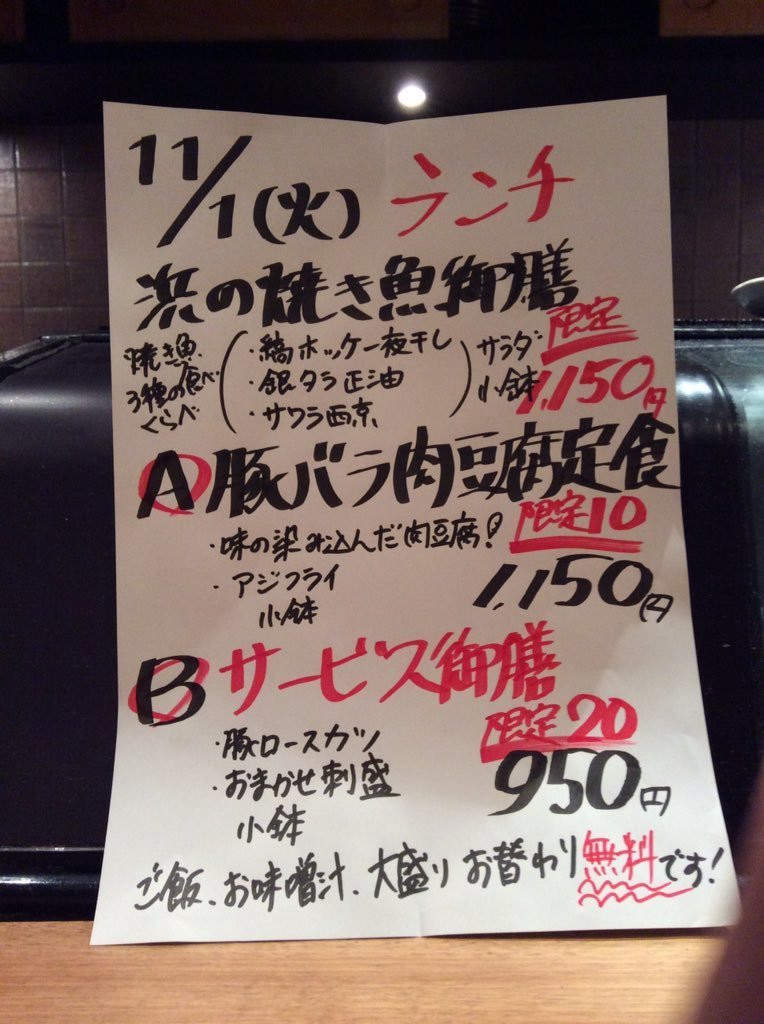 11/1(火) ランチ
浜の焼き魚御膳
限定
焼き魚
3種の食べ
くらべ
・縞ホッケ一夜干し
・銀タラ正油
・サワラ西京
サラダ
小鉢
1,150円
A 豚バラ肉豆腐定食
・味の染み込んだ肉豆腐!
限定10
・アジフライ
小鉢
1,150円
B サービス御膳
限定20
・豚ロースカツ
・おまかせ刺盛
950円
小鉢
ご飯、お味噌汁、大盛り お替わり無料です!